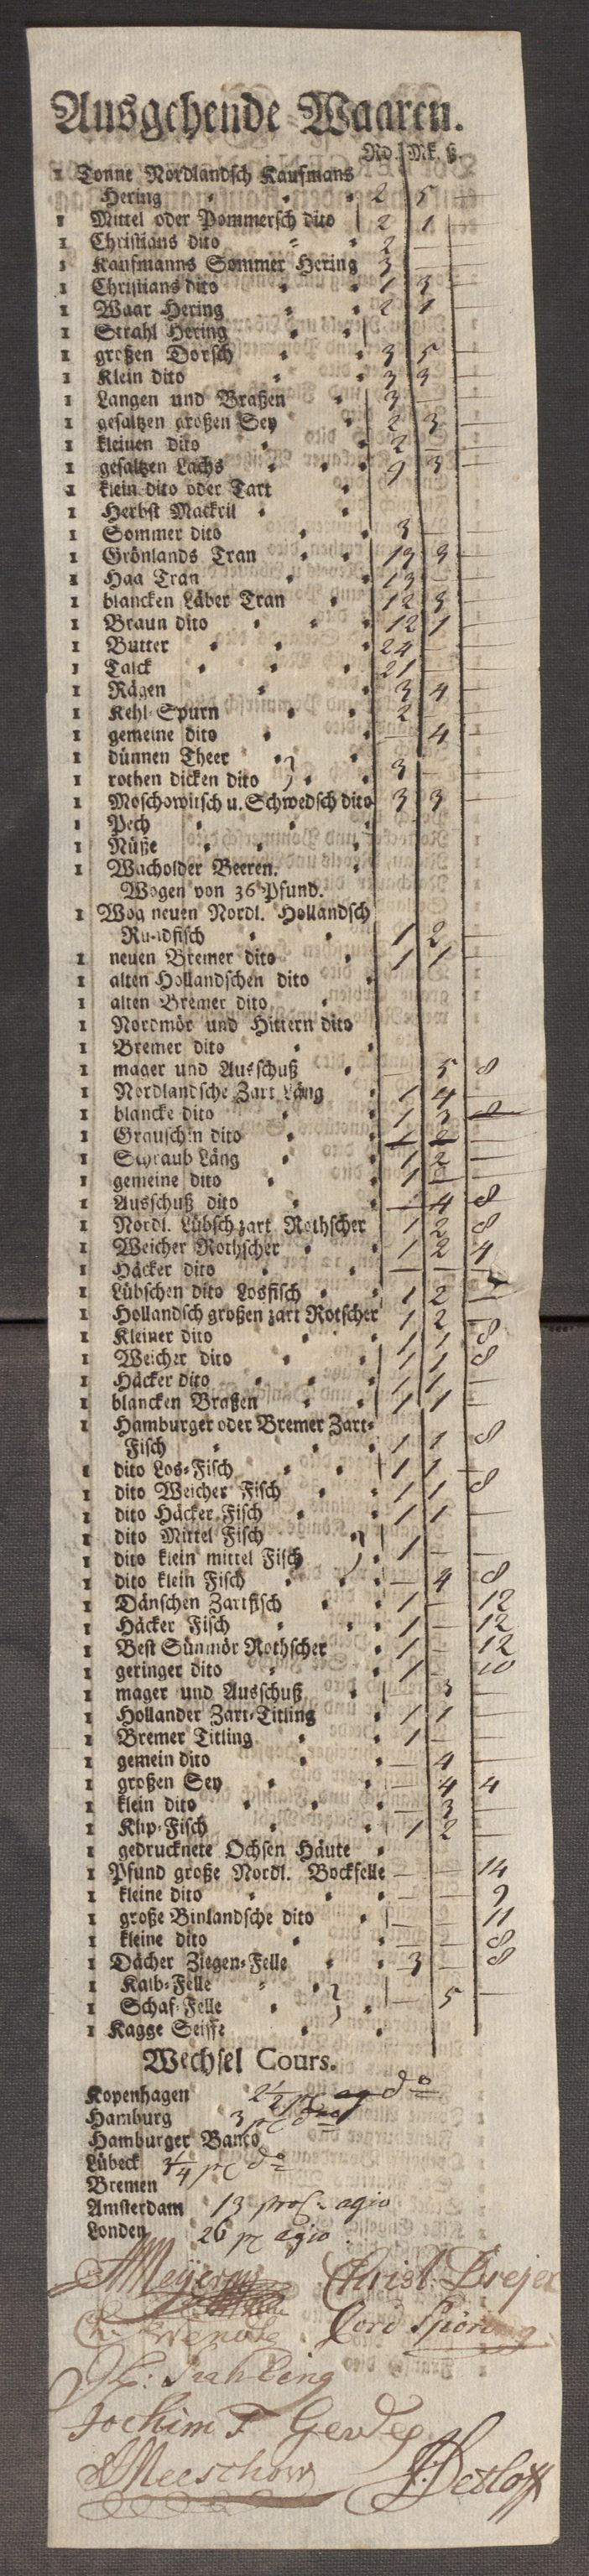 Ausgehende Waaren.
Rd. Mk. ß.
1 Tonne Nordlandsch Kaufmans
Hering 2 5 —
1 Mittel oder Pommersch dito 2 1 —
1 Christians dito 2 — —
1 Kaufmanns Sommer Hering 3 — —
1 Christians dito 1 3 —
1 Waar Hering 2 1 —
1 Strahl Hering
1 großen Dorsch 3 5 —
1 Klein dito 3 3 —
1 Langen und Braßen 3 — —
1 gesaltzen großen Sey 2 3 —
1 kleinen dito 2 — —
1 gesaltzen Lachs 9 3 —
1 klein dito oder Tart
1 Herbst Mackril
1 Sommer dito 3 — —
1 Grönlands Tran 13 3 —
1 Haa Tran 13 — —
1 blancken Läber Tran 12 3 —
1 Braun dito 12 1 —
1 Butter 24 — —
1 Talck 21 — —
1 Rägen 3 4 —
1 Kehl-Spurn 2 — —
1 gemeine dito — 4 —
1 dünnen Theer
1 rothen dicken dito 3 — —
1 Moschowitsch u. Schwedsch dito 3 3 —
1 Pech
1 Nüße
1 Wacholder Beeren.
Wogen von 36 Pfund.
1 Wog neuen Nordl. Hollandsch
Rundfisch 1 2 —
1 neuen Bremer dito 1 1 —
1 alten Hollandschen dito
1 alten Bremer dito
1 Nordmör und Hittern dito
1 Bremer dito
1 mager und Ausschuß — 5 8
1 Nordlandsche Zart Läng 1 4 —
1 blancke dito 1 3 8
1 Grauschen dito 1 2 —
1 Schraub Läng 1 2 —
1 gemeine dito 1 — —
1 Ausschuß dito — 4 8
1 Nordl. Lübsch zart Rothscher 1 2 8
1 Weicher Rothscher 1 2 4
1 Häcker dito — — —
1 Lübschen dito Losfisch 1 2 —
1 Hollandsch großen zart Rotscher 1 2 —
1 Kleiner dito 1 1 8
1 Weicher dito 1 1 8
1 Häcker dito 1 1 —
1 blancken Braßen 1 1 —
1 Hamburger oder Bremer Zart-
Fisch 1 1 8
1 dito Los-Fisch 1 1 —
1 dito Weicher Fisch 1 1 8
1 dito Häcker Fisch 1 1 —
1 dito Mittel Fisch
1 dito klein mittel Fisch 1 — —
1 dito klein Fisch — 4 8
1 Dänschen Zartfisch 1 — 12
1 Häcker Fisch 1 — 12
1 Best Sünmör Rothscher 1 — 12
1 geringer dito 1 — 10
1 mager und Ausschuß 3 —
1 Hollander Zart-Titling 1 1 —
1 Bremer Titling 1 — —
1 gemein dito — 4 —
1 großen Sey — 4 4
1 klein dito — 3 —
1 Klip-Fisch 1 2 —
1 gedrucknete Ochsen Häute
1 Pfund große Nordl. Bockfelle — — 14
1 kleine dito — — 9
1 große Binlandsche dito — — 11
1 kleine dito — — 8
1 Dächer Ziegen-Felle 3 — 8
1 Kalb-Felle
1 Schaf-Felle — 5 —
1 Kagge Seiffe
Wechsel Cours.
Kopenhagen 2½ pC ag do
Hamburg 3 pC do
Hamburger Banco
Lübeck ¾ pC do
Bremen
Amsterdam 13 proC agio
Londen 26 pC agio
Meyer Christ. Dreyer
Cord
Jochim F Gerdes
Meeschow J. Detloff